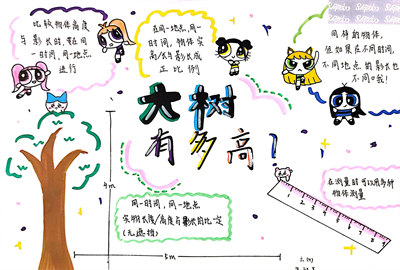 比较物体高度
与影长时,要在同
一时间,同一地点
进行
在同一地点,同一
时间,物体实
高与影长成
正比例
同样的物体,
但如果在不同时间,
不同地点的影长也
不同哦!
大树
有多高!
4m
同一时间,同一地点
实物长度/高度与影长的比一定
(无遮挡)
5m
在测量时可以用多种
物体测量